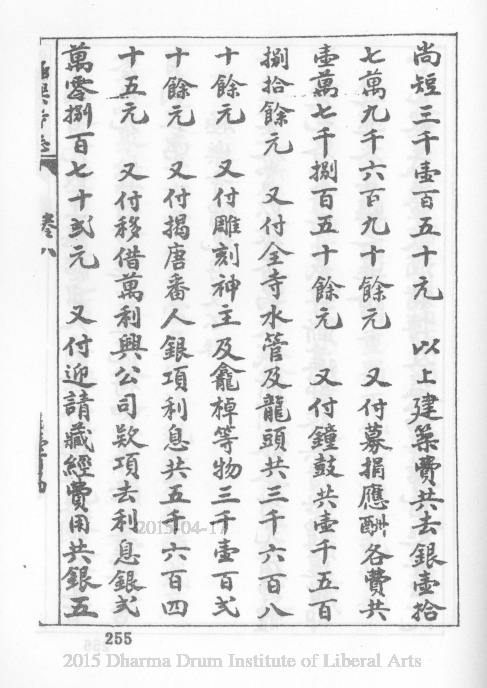 尚短三千壹百五十元　以上建築費共去銀壹拾
七萬九千六百九十餘元　又付募捐應酬各費共
壹萬七千捌百五十餘元　又付鐘鼓共壹千五百
捌拾餘元　又付全寺水管及龍頭共三千六百八
十餘元　又付雕刻神王及龕棹等物三千壹百弍
十餘元　又付揭唐番人銀項利息共五千六百四
十五元　又付移借萬利興公司欵項去利息銀弍
萬零捌百七十弍元　又付迎請藏經費用共銀五
卷之八
255
2015-04-17
2015 Dharma Drum Institute of Liberal Arts